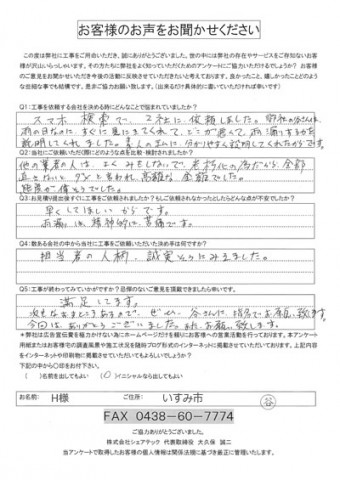 お客様のお声をお聞かせください
この度は弊社に工事をご用命いただき、誠にありがとうございました。世の中には弊社の存在やサービスをご存知ないお客様
が沢山いらっしゃいます。その方々に弊社をよく知っていただくためのアンケートにご協力いただけるでしょうか？ お客様
のご意見をお聞かせいただき今後の活動に反映させていただきたいと考えております。良かったこと、嬉しかったことどのよう
な些細な事でも結構です。是非ご協力お願い致します。（出来るだけ具体的に書いていただければ幸いです）
Q1：工事を依頼する会社を決める時にどんなことで悩まれていましたか？
スマホ 検索で、2社に依頼しました。
雨の日なのに、すぐに見にきてくれて、どこが悪くて、雨漏りするかを
説明してくれました。素人の私に、分かりやすく説明してくれたからです。
Q2：当社にご依頼いただく際にどのような点を比較・検討されましたか？
他の業者の人は、よくみもしないで、老朽化の為だから、全部
直さないとダメと言われ、高額な金額でした。
Q3：お見積り提出後すぐにご依頼されましたか？もしご依頼されなかったとしたらどんな点が不安でしたか？
早くしてほしいからです。
雨漏りは、精神的に苦痛です。
Q4：数ある会社の中から当社に工事をご依頼いただいた決め手は何ですか？
担当者の人柄、誠実さにみえました。
Q5：工事が終わってみていかがですか？忌憚のないご意見を頂戴できましたら幸いです。
満足してます。
今回は、ありがとうございました。また、お願い致します。
＊弊社は広告宣伝費を極力かけない為にホームページだけを頼りにお客様への営業活動を行っております。本アンケート
用紙またはお客様宅の調査風景や施工状況を随時ブログ形式のインターネットに掲載させていただいております。上記内容
をインターネットや印刷物に掲載させていただいてもよろしいでしょうか？
下記の中から○印をお付け下さい。
（ ）名前を出してもよい （○）イニシャルなら出してもよい
お名前： H様 ご住所： いすみ市
FAX 0438-60-7774
ご協力ありがとうございました。
株式会社シェアテック 代表取締役 大久保 誠二
当アンケートで取得したお客様の個人情報は関係法規に基づき厳正に管理いたします。